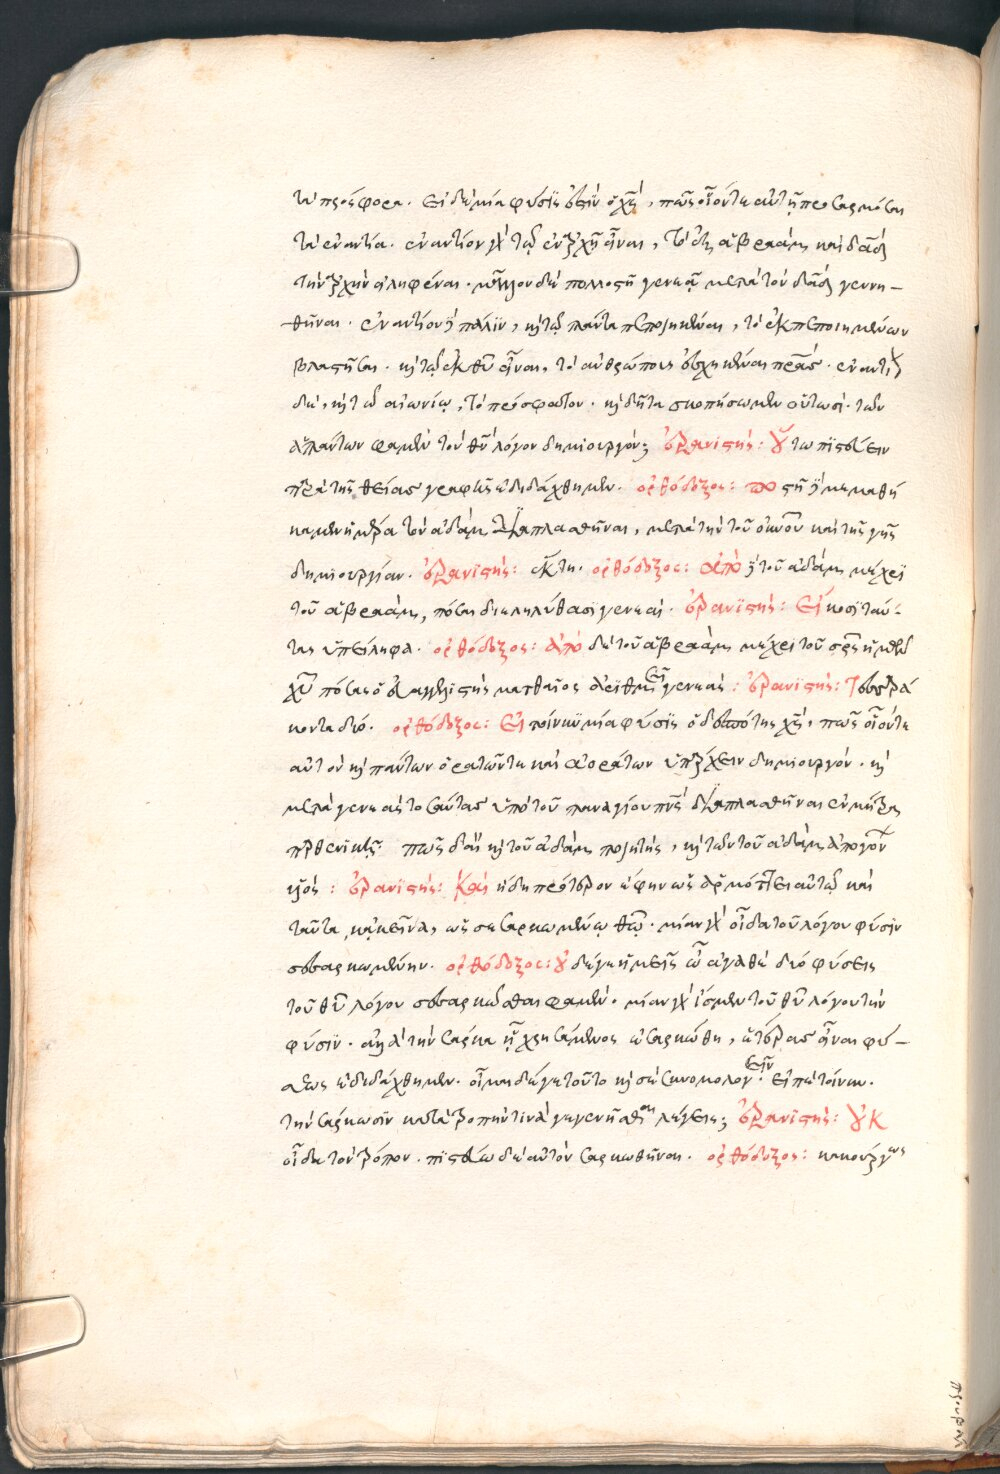 τὰ πρόσφορα. εἰ δὲ μία φύσις ἐστὶν ὁ χς, πῶς οἷόν τε αὐτῇ προσαρμόσαι
τὰ ἐναντία. ἐναντίον γὰρ τῷ ἐν ἀρχῇ εἶναι, τὸ ἐξ ἀβραὰμ καὶ δαδ
τὴν ἀρχὴν εἰληφέναι. μᾶλλον δὲ πολλοστῇ γενεᾷ μετὰ τὸν δαδ γεννη-
θῆναι. ἐναντίον δὲ πάλιν, κὶ τῷ πάντα πεποιηκέναι, τὸ ἐκ πεποιημένων
βλαστῆσαι. κὶ τῷ ἐκ θυ εἶναι, τὸ ἀνθρώπους ἐσχηκέναι πρας. ἐναντίον
δὲ, κὶ τῷ αἰωνίῳ, τὸ πρόσφατον. κὶ δῆτα σκοπήσωμεν οὕτωσί. τῶν
ἁπάντων φαμὲν τὸν θν λόγον δημιουργόν; ἐρανιστής: οὕτω πιστεύειν
παρὰ τῆς θείας γραφῆς ἐδιδάχθημεν. ὀρθόδοξος: πόστῃ δὲ μεμαθή
καμεν ἡμέρα τὸν ἀδὰμ διαπλασθῆναι, μετὰ τὴν τοῦ οὐνοῦ καὶ τῆς γῆς
δημιουργίαν. ἐρανιστής: ἕκτῃ. ὀρθόδοξος: ἀπὸ δὲ τοῦ ἀδὰμ μέχρι
τοῦ ἀβραὰμ, πόσαι διεληλύθασι γενεαί. ἐρανιστής: Εἴκοσι ταύ-
τας ὑπείληφα. ὀρθόδοξος: ἀπὸ δὲ τοῦ ἀβραὰμ μέχρι τοῦ σρς ἡμῶν
χυ πόσας ὁ εὐαγγελιστὴς ματθαῖος ἀριθμεῖ γενεάς: ἐρανιστής: Τεσσαρά
κοντα δύο. ὀρθόδοξος: Εἰ τοίνυν μία φύσις ὁ δεσπότης χς, πῶς οἷόν τε
αὐτὸν κὶ πάντων ὁρατῶν τε καὶ ἀοράτων ὑπάρχειν δημιουργὸν. κὶ
μετὰ γενεὰς τοσαύτας ὑπὸ τοῦ παναγίου πνς διαπλασθῆναι ἐν μήτρᾳ
παρθενικῇ. πῶς δαὶ κὶ τοῦ ἀδὰμ ποιητής, κὶ τῶν τοῦ ἀδὰμ ἀπογόνων
υἱός: ἐρανιστής: Καὶ ἤδη πρότερον ἔφην ὡς ἁρμόττει αὐτῷ καὶ
ταῦτα κἀκεῖνα, ὡς σεσαρκωμένῳ θῷ. μίαν γὰρ οἶδα τοῦ λόγου φύσιν
σεσαρκωμένην. ὀρθόδοξος: οὐδέ γε ἡμεῖς ὦ ἀγαθὲ δύο φύσεις
τοῦ θυ λόγου σεσαρκῶσθαι φαμέν. μίαν γὰρ ἴσμεν τοῦ θυ λόγου τὴν
φύσιν. ἀλλὰ τὴν σάρκα ᾗ χρησάμενος ἐσαρκώθη, ἑτέρας εἶναι φύ-
σεως ἐδιδάχθημεν. οἶμαι δέ γε τοῦτο κὶ σὲ συνομολογεῖν. εἰπὲ τοίνυν.
τὴν σάρκωσιν κατὰ τροπήν τινα γεγενῆσθαι λέγεις; ἐρανιστής: οὐκ
οἶδα τὸν τρόπον. πιστεύω δὲ αὐτὸν σαρκωθῆναι. ὀρθόδοξος: κακούργως